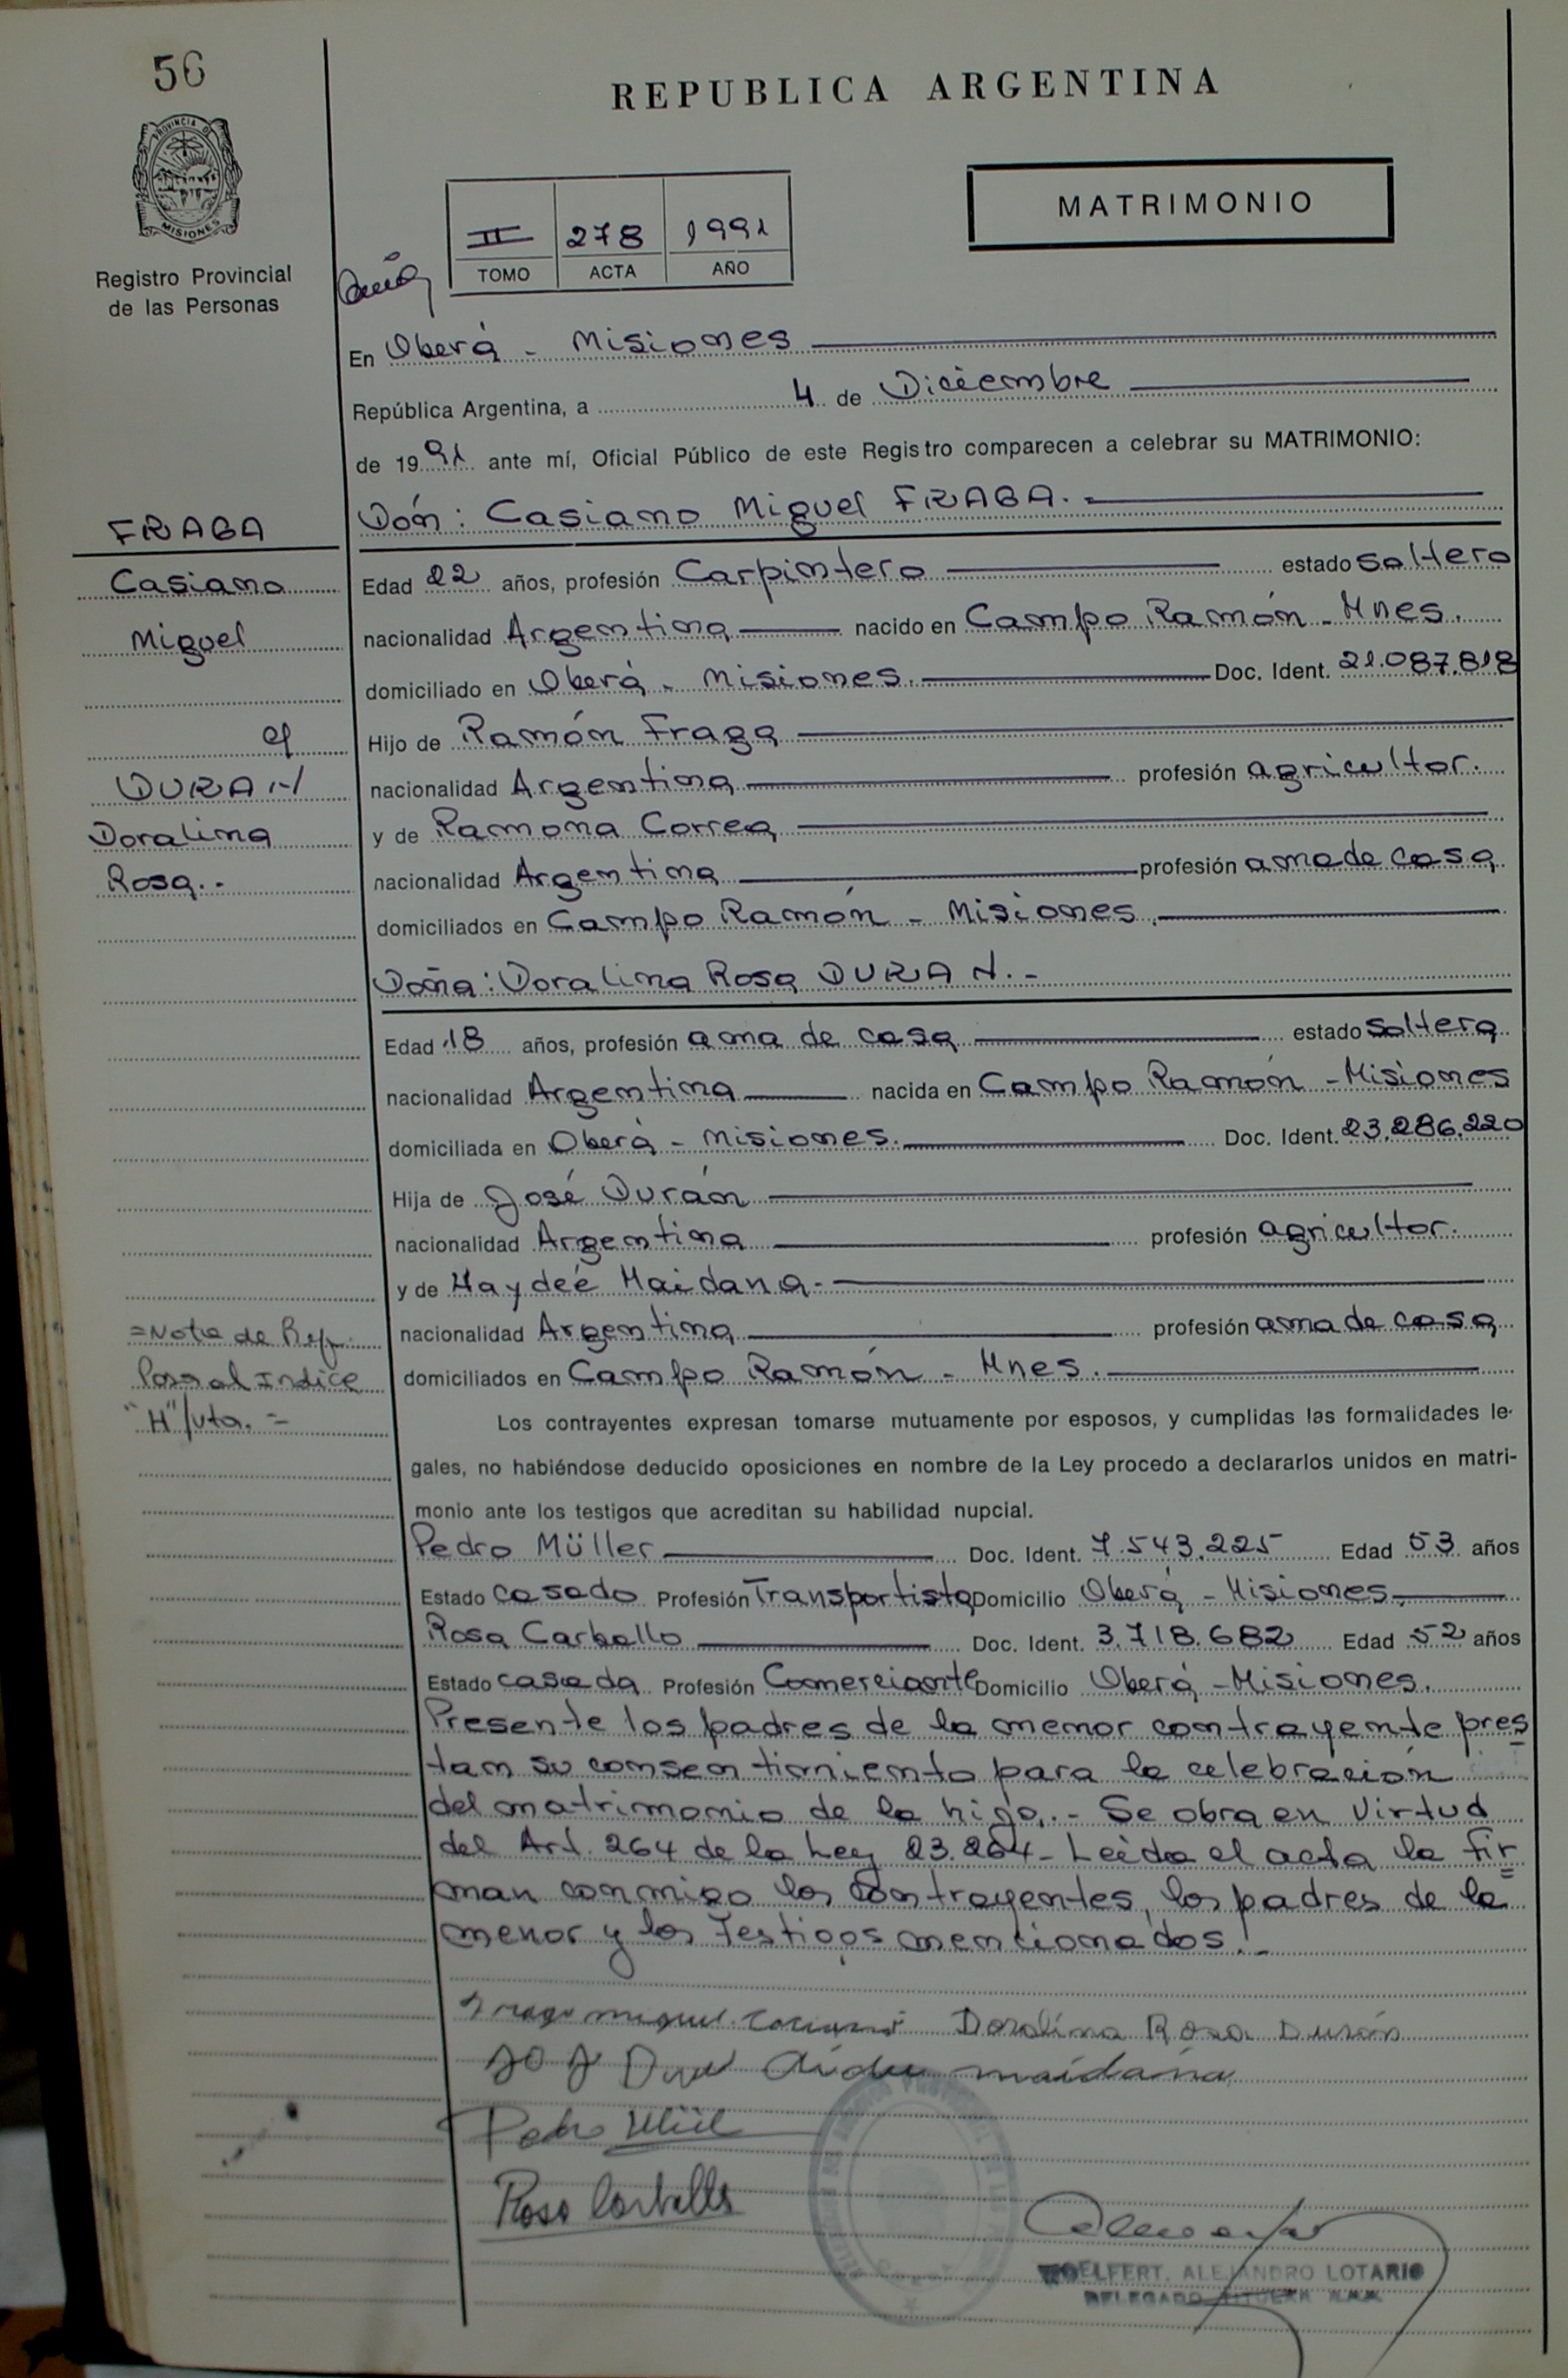 56
REPUBLICA ARGENTINA
PROVINCIA DE
MISIONES
Registro Provincial
de las Personas
II 278 1991
TOMO ACTA AÑO
MATRIMONIO
En Oberá - Misiones
República Argentina, a 4 de Diciembre
de 1991 ante mí, Oficial Público de este Registro comparecen a celebrar su MATRIMONIO:
Dón: Casiano Miguel FRAGA.-
FRAGA
Casiano
Miguel
c/
DURAN
Doralina
Rosa.-
Edad 22 años, profesión Carpintero estado soltero
nacionalidad Argentina nacido en Campo Ramón - Mnes.
domiciliado en Oberá - Misiones. Doc. Ident. 21.087.818
Hijo de Ramón Fraga
nacionalidad Argentina profesión agricultor.
y de Ramona Correa
nacionalidad Argentina profesión ama de casa
domiciliados en Campo Ramón - Misiones.
Doña: Doralina Rosa DURAN.-
Edad 18 años, profesión ama de casa estado soltera
nacionalidad Argentina nacida en Campo Ramón - Misiones
domiciliada en Oberá - Misiones. Doc. Ident. 23.286.220
Hija de José Durán
nacionalidad Argentina profesión agricultor.
y de Haydeé Maidana.-
nacionalidad Argentina profesión ama de casa
domiciliados en Campo Ramón - Mnes.
=Nota de Ref.
Pasa al Indice
"H"/vta. =
Los contrayentes expresan tomarse mutuamente por esposos, y cumplidas las formalidades le-
gales, no habiéndose deducido oposiciones en nombre de la Ley procedo a declararlos unidos en matri-
monio ante los testigos que acreditan su habilidad nupcial.
Pedro Müller Doc. Ident. 7.543.225 Edad 53 años
Estado casado Profesión Transportista Domicilio Oberá - Misiones.
Rosa Carballo Doc. Ident. 3.718.682 Edad 52 años
Estado casada Profesión Comerciante Domicilio Oberá - Misiones.
Presente los padres de la menor contrayente pres
tan su consentimiento para la celebración
del matrimonio de la hija.- Se obra en Virtud
del Art. 264 de la Ley 23.264- Leída el acta la fir
man conmigo los contrayentes, los padres de la
menor y los Testigos mencionados.-
Fraga miguel Casiano Doralina Rosa Durán
maidana
Pedro Müll
Rosa Carballo
WOELFERT, ALEJANDRO LOTARIO
DELEGADO TITULAR